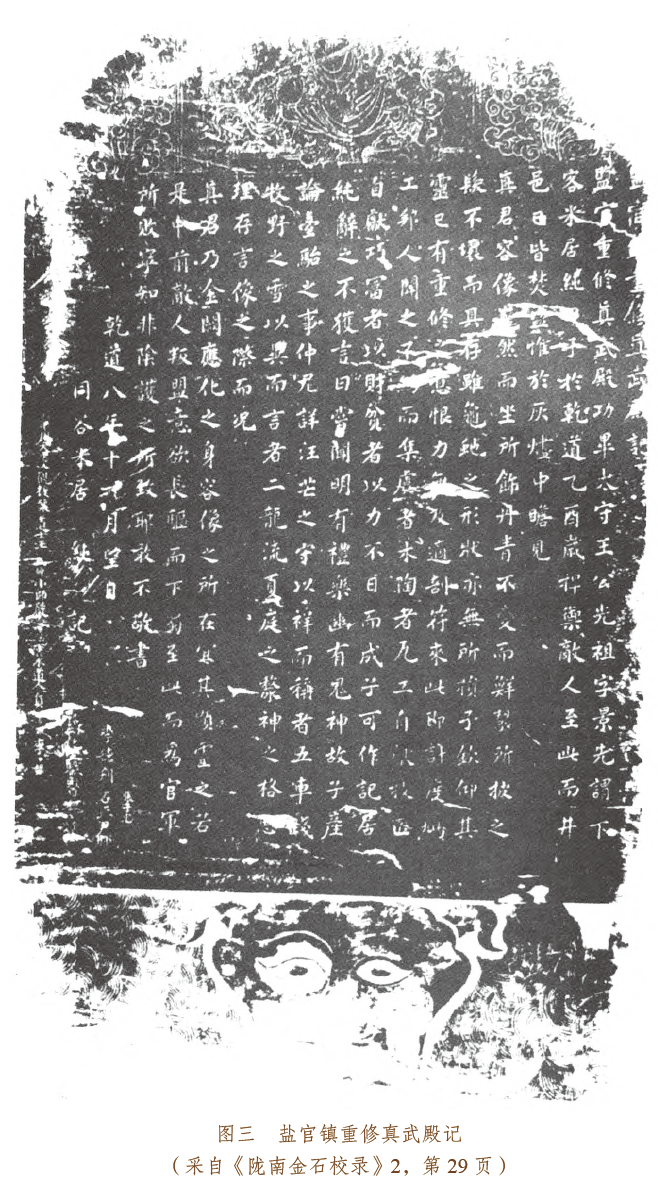 官修真武殿記
鹽官重修真武殿功畢太守王公光祖字景先謂下
客米居純曰予於乾道乙酉歲捍禦敵人至此而井
邑日皆焚盡惟於灰燼中瞻見
真君容像然而坐所飾丹青不變而鮮製所披之
髮不壞而具存雖龜虵之形狀亦無所損予欽仰其
靈已有重修意恨力無及適剖符來此即計度鳩
工郡人聞之不而集虞者木陶者瓦工自技匠
自獻巧富者以財貧者以力不日而成子可作記居
純辭之不獲言曰嘗聞明有禮樂幽有鬼神故子產
論臺駘之事仲尼詳汪芒之守以祥而稱者五車餞
牧野之雪以異而言者二龍流夏庭之漦神之格
理存言像之際而況
真君乃金闕應化之身容像之所在宜其顯靈之若
是中前敵人叛盟意欲長驅而下蜀至此而為官軍
所敗寧知非陰護之所致耶敢不敬書
乾道八年十月望日
同谷米居純記
图三 盐官镇重修真武殿记
（采自《陇南金石校录》2，第 29 页）